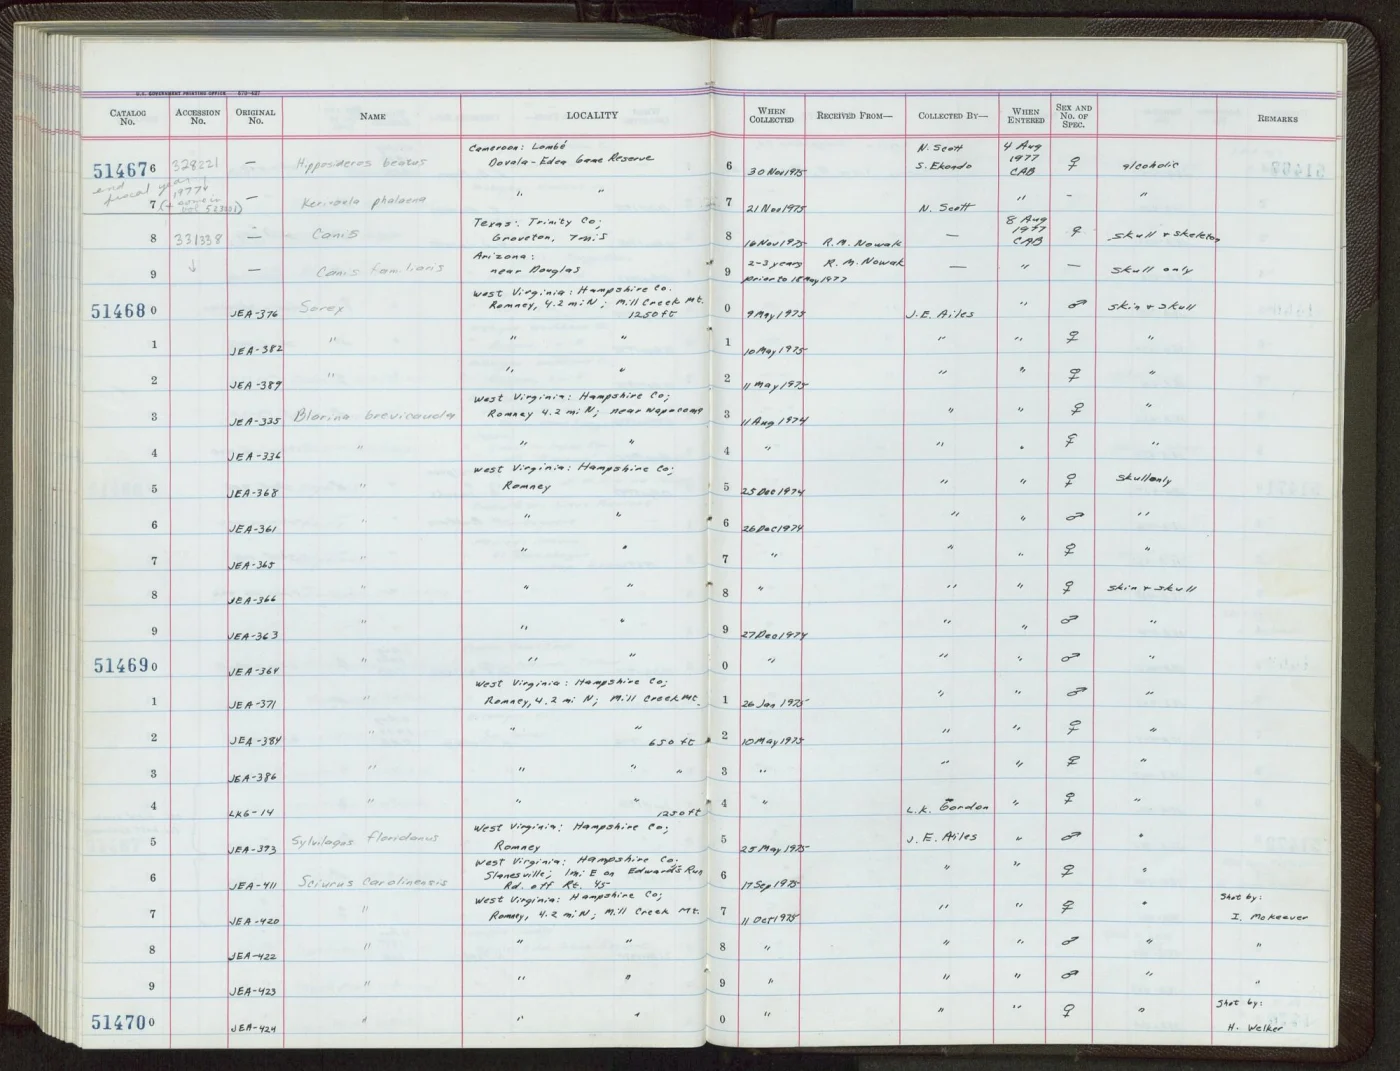 U.S. GOVERNMENT PRINTING OFFICE 576-427
CATALOG No. ACCESSION No. ORIGINAL No. NAME LOCALITY WHEN COLLECTED RECEIVED FROM— COLLECTED BY— WHEN ENTERED SEX AND No. OF SPEC. REMARKS
514676 328221 — Hipposideros beatus Cameroon: Lombé Douala-Edea Game Reserve 6 30 Nov 1975 N. Scott S. Ekondo 4 Aug 1977 CAB ♀ alcoholic
end fiscal year 1977
7 — Kerivoula phalaena " " 7 21 Nov 1975 N. Scott " - "
8 331338 — Canis Texas: Trinity Co; Groveton, 7 mi S 8 16 Nov 1975 R.M. Nowak — 8 Aug 1977 CAB ♀ skull & skeleton
9 ↓ — Canis familiaris Arizona: near Douglas 9 2-3 years prior to 18 May 1977 R.M. Nowak — " — skull only
514680 JEA-376 Sorex West Virginia: Hampshire Co. Romney, 4.2 mi N; Mill Creek Mt. 1250 ft 0 9 May 1975 J.E. Ailes " ♂ skin & skull
1 JEA-382 " " " 1 10 May 1975 " " ♀ "
2 JEA-389 " " " 2 11 May 1975 " " ♀ "
3 JEA-335 Blarina brevicauda West Virginia: Hampshire Co; Romney 4.2 mi N; near 3 11 Aug 1974 " " ♀ "
4 JEA-336 " " " 4 " " " ♀ "
5 JEA-368 " West Virginia: Hampshire Co; Romney 5 25 Dec 1974 " " ♀ skull only
6 JEA-361 " " " 6 26 Dec 1974 " " ♂ "
7 JEA-365 " " " 7 " " " ♀ "
8 JEA-366 " " " 8 " " " ♀ skin & skull
9 JEA-363 " " " 9 27 Dec 1974 " " ♂ "
514690 JEA-364 " " " 0 " " " ♂ "
1 JEA-371 " West Virginia: Hampshire Co; Romney, 4.2 mi N; Mill Creek Mt. 1 26 Jan 1975 " " ♂ "
2 JEA-384 " " " 650 ft 2 10 May 1975 " " ♀ "
3 JEA-386 " " " " 3 " " " ♀ "
4 LKG-14 " " " 1250 ft 4 " L.K. Gordon " ♀ "
5 JEA-393 Sylvilagus floridanus West Virginia: Hampshire Co; Romney 5 25 May 1975 J.E. Ailes " ♂ "
6 JEA-411 Sciurus carolinensis West Virginia: Hampshire Co. Slanesville; 1 mi E on Edwards Run Rd. off Rt. 45 6 17 Sep 1975 " " ♀ "
7 JEA-420 " West Virginia: Hampshire Co; Romney, 4.2 mi N; Mill Creek Mt. 7 11 Oct 1975 " " ♀ " Shot by: I. McKeever
8 JEA-422 " " " 8 " " " ♂ " "
9 JEA-423 " " " 9 " " " ♂ " "
514700 JEA-424 " " " 0 " " " ♀ " Shot by: H. Welker